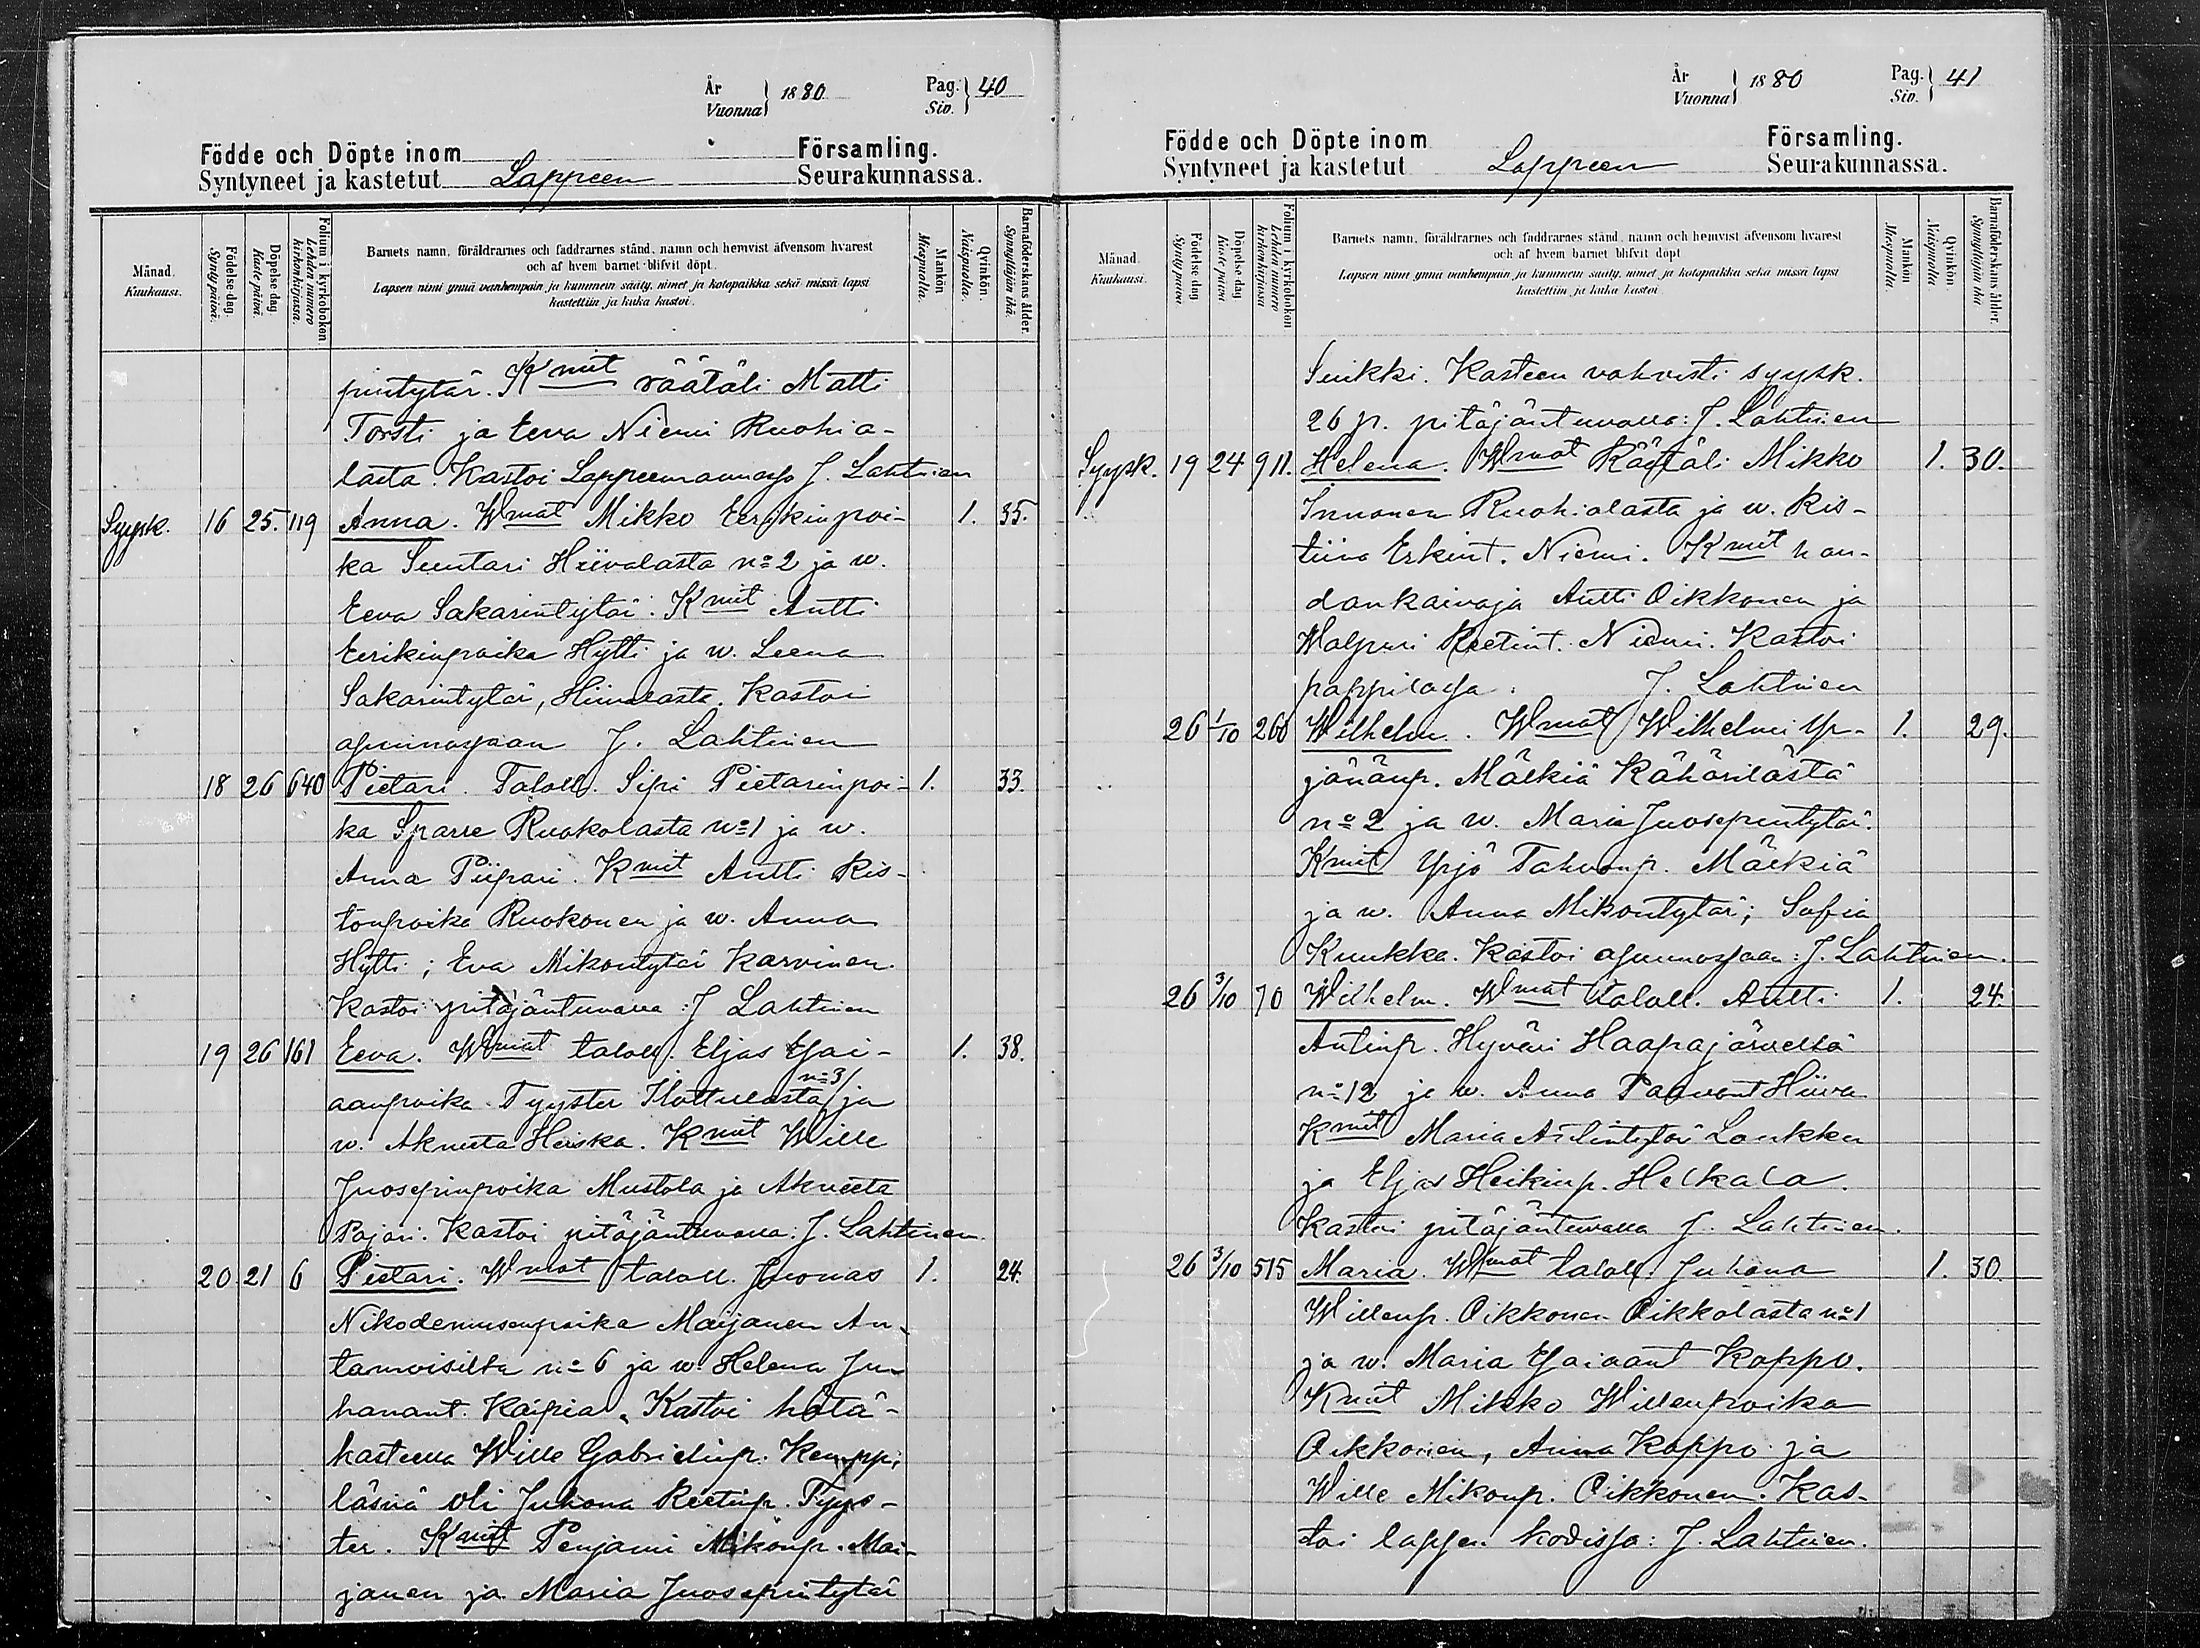 År
Vuonna } 1880
Pag.
Siv. } 40
Födde och Döpte inom Församling.
Syntyneet ja kastetut Lappeen Seurakunnassa.
Månad.
Kuukausi.
Födelse dag.
Synty päivä.
Döpelse dag.
Kaste päivä.
Folium i kyrkoboken
Lehden numero kirkonkirjassa.
Barnets namn, föräldrarnes och faddrarnes stånd, namn och hemvist äfvensom hvarest
och af hvem barnet blifvit döpt.
Lapsen nimi ynnä vanhempain ja kummein sääty, nimet ja kotopaikka sekä missä lapsi
kastettiin ja kuka kastoi.
Mankön.
Miespuolta.
Qvinkön.
Naispuolta.
Barnaföderskans ålder.
Synnyttäjän ikä.
pintytär. Kmit räätäli Matti
Torsti ja Eeva Niemi Ruohia-
lasta. Kastoi Lappeenrannassa J. Lahtinen
Syysk. 16 25. 119 Anna. Wmat Mikko Eerikinpoi- 1. 35.
ka Suntari Hiivalasta n:o 2 ja w.
Eeva Sakarintytär. Kmit Antti
Eerikinpoika Hytti ja w. Leena
Sakarintytär, Hiivalasta. Kastoi
asunnossaan J. Lahtinen
18 26 640 Pietari. Taloll. Sipi Pietarinpoi- 1. 33.
ka Sparre Ruokolasta n:o 1 ja w.
Anna Piipari. Kmit Antti Ris-
tonpoika Ruokonen ja w. Anna
Hytti; Eva Mikontytär Karvinen.
Kastoi pitäjäntuvassa: J. Lahtinen
19 26 161 Eeva. Wmat taloll. Eljas Esai- 1. 38.
n:o 3/
aanpoika Tyyster Hotulasta/ ja
w. Akneeta Heiska. Kmit Wille
Juosepinpoika Mustola ja Akneeta
Pajari. Kastoi pitäjäntuvassa: J. Lahtinen.
20 21 6 Pietari. Wmat taloll. Juonas 1. 24.
Nikodemusenpoika Maijanen An-
tamoisilta n:o 6 ja w. Helena Ju-
hanant. Kaipia. Kastoi hätä-
kasteella Wille Gabrielinp. Kemppi;
läsnä oli Juhana Reetinp. Tyys-
ter. Kmit Penjami Mikonp. Mai-
janen ja Maria Juosepintytär
År
Vuonna } 1880
Pag.
Siv. } 41
Födde och Döpte inom Församling.
Syntyneet ja kastetut Lappeen Seurakunnassa.
Månad.
Kuukausi.
Födelse dag.
Synty päivä.
Döpelse dag.
Kaste päivä.
Folium i kyrkoboken
Lehden numero kirkonkirjassa.
Barnets namn, föräldrarnes och faddrarnes stånd, namn och hemvist äfvensom hvarest
och af hvem barnet blifvit döpt.
Lapsen nimi ynnä vanhempain ja kummein sääty, nimet ja kotopaikka sekä missä lapsi
kastettiin ja kuka kastoi.
Mankön.
Miespuolta.
Qvinkön.
Naispuolta.
Barnaföderskans ålder.
Synnyttäjän ikä.
Kasteen vahvisti syysk.
26 p. pitäjäntuvassa: J. Lahtinen
Syysk. 19 24 911. Helena. Wmat Räätäli Mikko 1. 30.
Innonen Ruohialasta ja w. Kris-
tiina Erkint. Niemi. Kmit hau-
dankaivaja Antti Oikkonen ja
Walpuri Reetint. Niemi. Kastoi
pappilassa. J. Lahtinen
26 1/10 260 Wilhelm. Wmat Wilhelmi Yr- 1. 29.
jänänp. Mälkiä Kähärilästä
n:o 2 ja w. Maria Juosepintytär.
Kmit Yrjö Tahvonp. Mälkiä
ja w. Anna Mikontytär; Sofia
Kuukka. Kastoi asunnossaan: J. Lahtinen.
26 3/10 70 Wilhelm. Wmat taloll. Antti 1. 24.
Antinp. Hyväri Haapajärveltä
n:o 12 ja w. Anna Paavont Hiiva
Kmit Maria Loukka
ja Eljas Heikinp. Helkala.
Kastoi pitäjäntuvassa J. Lahtinen.
26 3/10 515 Maria. Wmat taloll. Juhana 1. 30.
Willenp. Oikkonen Oikkolasta n:o 1
ja w. Maria Esaiaant Koppo.
Kmit Mikko Willenpoika
Oikkonen, Anna Koppo ja
Wille Mikonp. Oikkonen. Kas-
toi lapsen kodissa: J. Lahtinen.